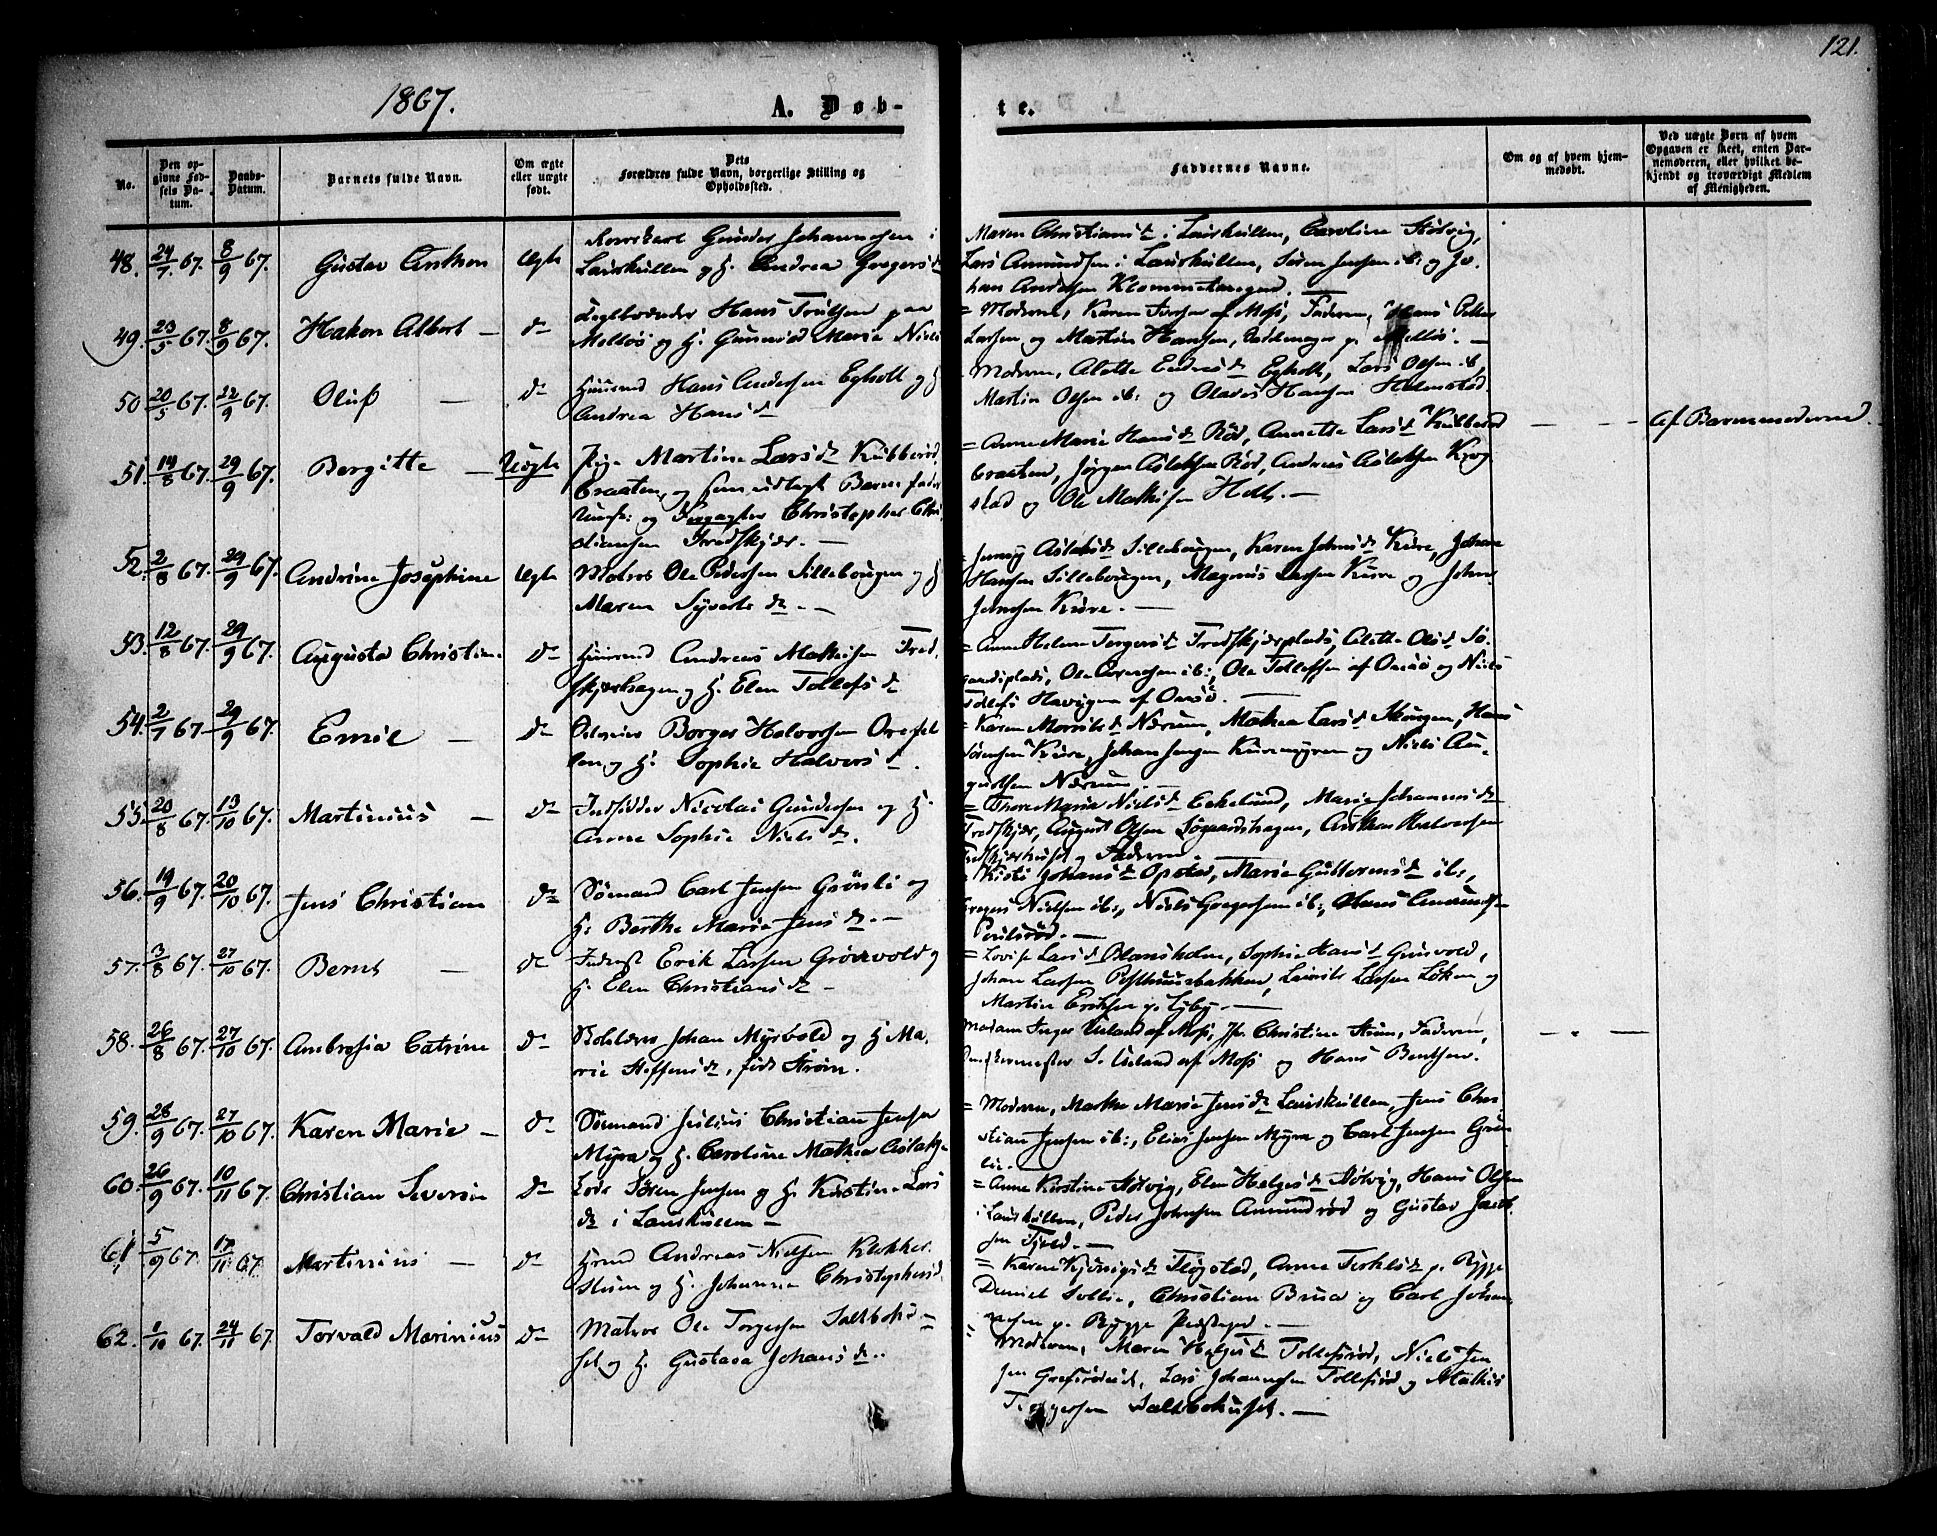 121.
1867.
A. Døb-
te.
No.
Den op-
givne Fød-
sels Da-
tum.
Daabs-
Datum.
Barnets fulde Navn.
Om ægte
eller uægte
født.
Dets
Forældres fulde Navn, borgerlige Stilling og
Opholdssted.
Faddernes Navne.
Om og af hvem hjem-
medøbt.
Ved uægte Børn af hvem
Opgaven er skeet, enten Bar-
nemoderen, eller hvilket be-
kjendt og troværdigt Medlem
af Menigheden.
48. 24/7 67. 8/9 67. Gustav Anthon Ægte
Gunder Johannesen i
Laurkullen og H. Andrea Gregersd
Maren Christiansd i Laurkullen, Caroline Støtvig,
Lars Amundsen i Laurkullen, Søren Jensen ib: og Jo-
han Andersen
49. 23/5 67. 8/9 67. Hakon Albert - do
Hans Trulsen paa
Melløs og H. Gunnild Marie Niels
= Moderen, Karen Iversen af Moss, Faderen, Hans Peter
Larsen og Martin Hansen, p. Melløs. -
50 20/5 67. 22/9 67. Oluf - do
Huusmd Hans Andersen Egholt og H
Andrea Hansd
Moderen, Alette Endresd Egholt, Lars Olsen ib,
Martin Olsen ib: og Olaves Hansen Helmstad.
51. 14/8 67. 29/9 67. Bergitte - Uægte
Pige Martine Larsd Kubberød
braaten, og som udlagt Barnefader
Ungk: og Christopher Chri-
stiansen Fredskjær. -
= Anne Marie Hansd Rød, Annette Larsd Kubberød
braaten, Jørgen Aslaksen Rød, Andreas Aslaksen Krog
stad og Ole Mathisen Holt. -
Af Barnemoderen.
52. 2/8 67. 29/9 67. Andrine Josephine Ægte
Matros Ole Pedersen Sillebougen og H
Maren Syverts d. -
= Jenny Aslaksd Sillebougen, Karen Johnsd Kure, Johan
Hansen Sillebougen, Magnus Larsen Kure og John
Johnsen Kure. -
53. 12/8 67. 29/9 67. Augusta Christine. do
Huusmd Andreas Mathisen Fred-
skjærhagen og H. Elen Tollefsd
= Anne Helene Torgersd Fredskjærplads, Alette Olsd Sø-
gaardsplads, Ole Evensen ib:, Ole Tollefsen af Onsø og Niels
af Onsø.
54. 2/7 67. 29/9 67. Emil - do
Borger Halvorsen
og H. Sophie Halvorsd.
= Karen Morritsd Nærum, Mathea Larsd Haugen, Hans
Sørensen Kure, Johan Jensen Kuremyren og Niels Au-
gustsen Nærum. -
55. 20/8 67. 13/10 67. Martinius - do
Indsidder Nicolai Gundersen og H.
Anne Sophie Nielsd.
= Thore Marie Nielsd Eekelund, Marie Johannisd
Fredskjær, August Olsen Søgaardshagen, Anthon Halvorsen
Fredskjærhuset og Faderen.
56. 19/9 67. 20/10 67. Jens Christian do
Sømand Carl Jensen Grønli og
H. Berthe Marie Jensd. -
Johansd Opstad, Marie Guttormsd ib:,
Gregers Nielsen ib:, Niels Gregersen ib:, Hans Amunds-
Poulsrød. -
57. 3/8 67. 27/10 67. Bernt - do
Inderst Erik Larsen Grønvold og
H. Elen Christiansd -
= Lovise Larsd Blansholm, Sophie Hansd Grunvold,
Johan Larsen Posthuusbakken, Laurits Larsen Løken og
Martin Eriksen p. Ljby. -
58. 26/8 67. 27/10 67. Ambrosia Catrine do
Johan Myrvold og H Ma-
rie Steffensd, født Strøm.
Madam Inger Ueland af Moss, Jfr. Christine Strøm, Faderen,
S. Ueland af Moss og Hans Bentsen.
59. 28/9 67. 27/10 67. Karen Marie - do
Sømand Julius Christian Jensen
Myra og H. Caroline Mathea Aslaks
= Moderen, Marthe Marie Jensd Laurkullen, Jens Chri-
stian Jensen ib:, Elias Jensen Myra og Carl Jensen Grøn-
lie. -
60. 26/9 67. 10/11 67. Christian Severin do
Lods Søren Jensen og H Kirstine Lars
d i Laurkullen -
= Anne Kirstine Støtvig, Elen Helgesd Støtvig, Hans Olsen
i Laurkullen, Peder Johnsen Amundrød og Gustav Jacob-
sen -
61 5/9 67. 17/11 67. Martinius - do
Hmd Andreas Nielsen Klokker-
stuen og H. Johanne Christophersd.
= Karen Fløgstad, Anne Terkelsd p. Rygge
Daniel Sollie, Christian Brua og Carl Johan-
nesen p. Rygge Præstegd. -
62. 1/10 67. 24/11 67. Torvald Marinius do
Matros Ole Torgersen Saltbohu-
set og H. Gustava Johansd.
= Moderen, Maren Helgesd Tollefsrød, Niels Jen
sen Grefsrødeie, Lars Johannesen Tollefsrød og Mathis
Torgersen Saltbohuset. -